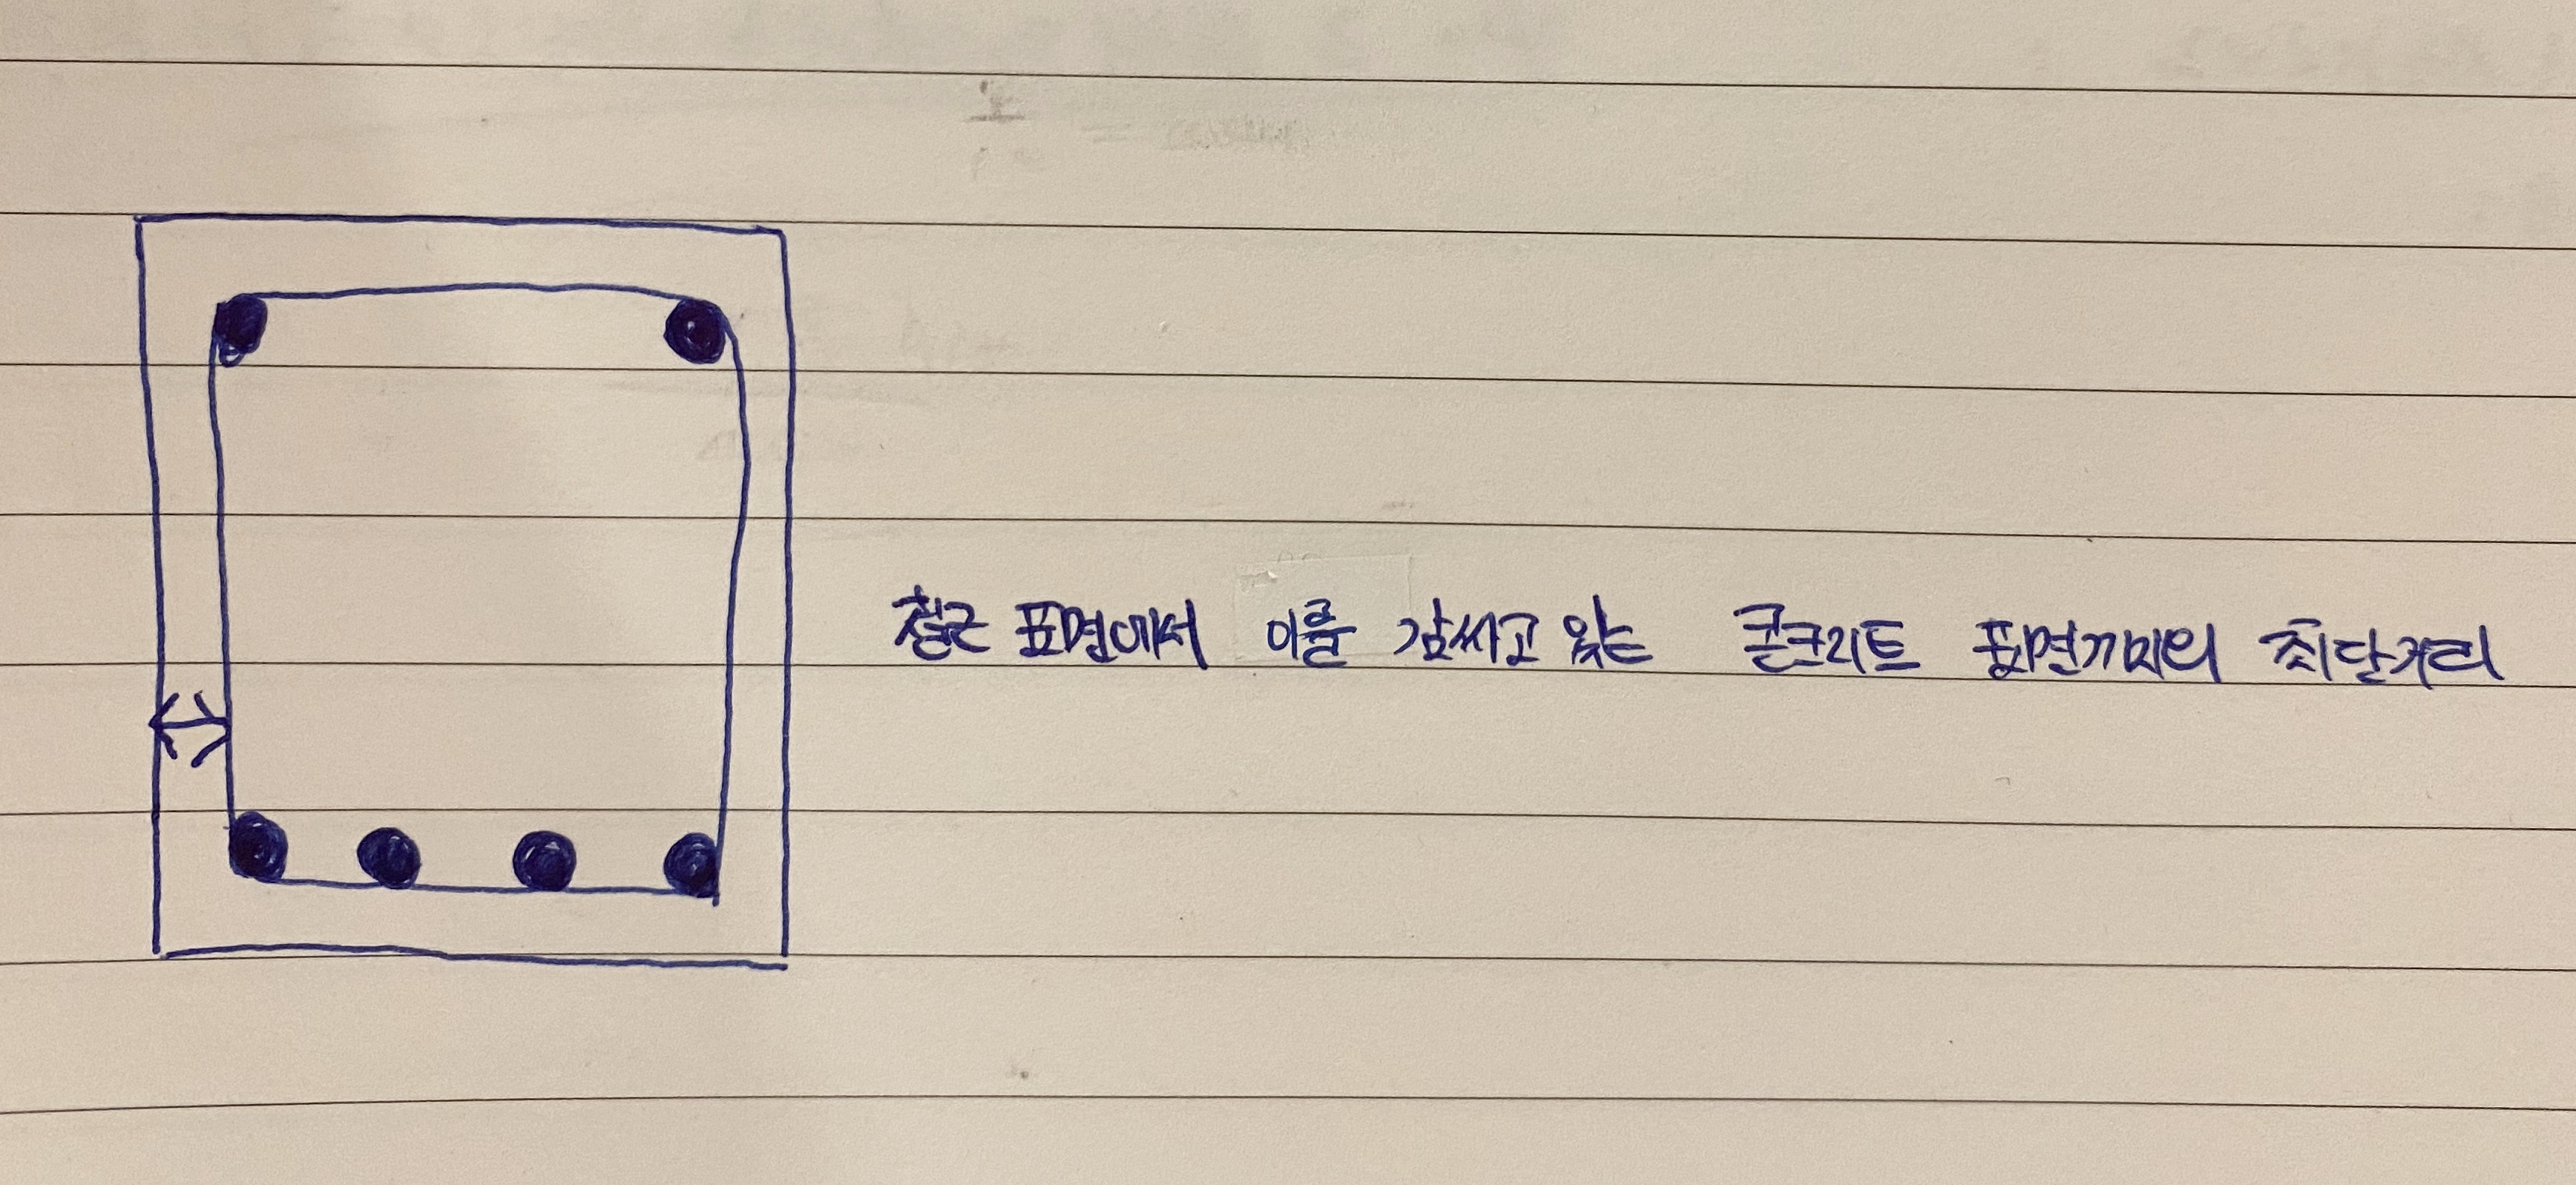 철근 표면에서 이를 감싸고 있는 콘크리트 표면까지의 최단거리